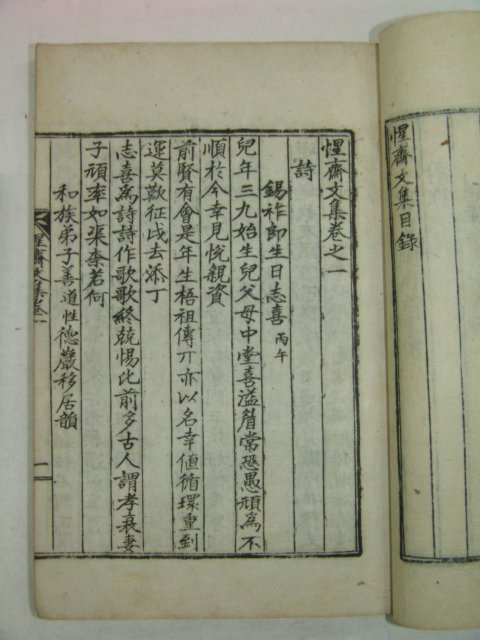 惺齋文集目錄
惺齋文集卷之一
詩
錫祚卽生日志喜 丙午
兒年三九始生兒父母中堂喜溢眉常恐愚頑爲不
順於今幸見悅親資
前賢有會是年生梧祖傳丌亦以名幸値循環重到
運莫歎征戍去添丁
志喜爲詩詩作歌歌終兢惕比前多古人謂孝衰妻
子頑率如渠奈若何
和族弟子善道性德巖移居韻
惺齋文集卷一
一